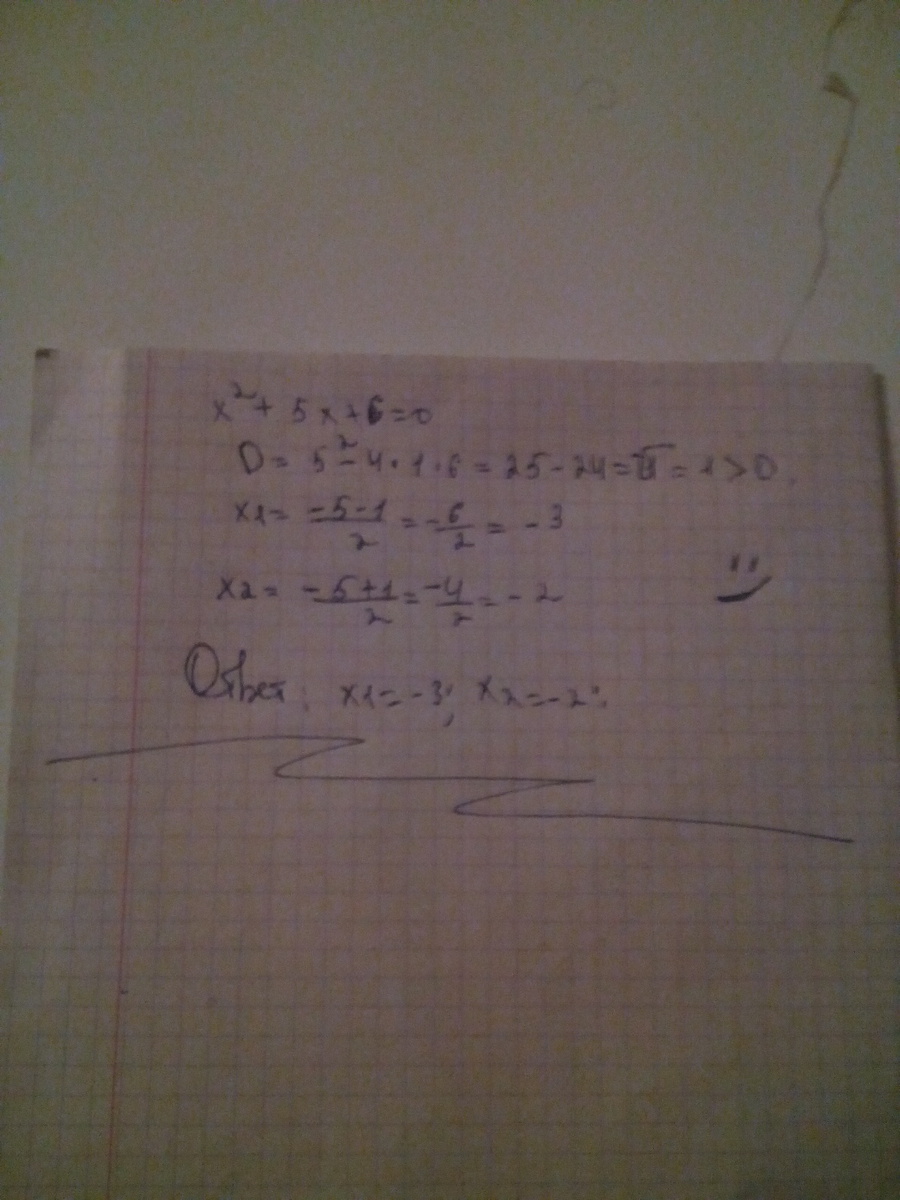 x² + 5x + 6 = 0
D = 5² - 4 · 1 · 6 = 25 - 24 = √1 = 1 > 0.
x1 = -5-1/2 = -6/2 = -3
x2 = -5+1/2 = -4/2 = -2
Ответ: x1 = -3; x2 = -2.